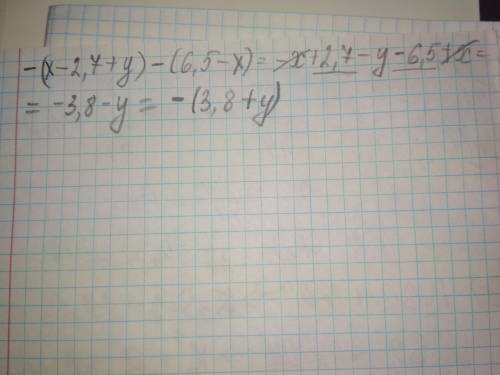 -(x-2,7+y)-(6,5-x)=-x+2,7-y-6,5+x=
=-3,8-y=-(3,8+y)